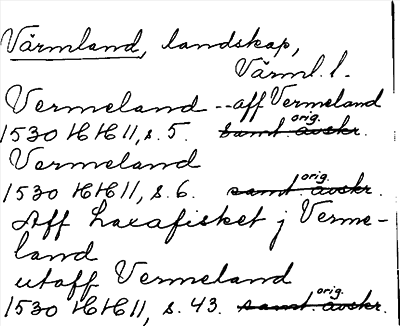 Värmland, landskap,
Värml. l.
Vermeland -- aff Vermeland
1530 HH 11, s. 5. samt. avskr. orig.
Vermeland
1530 HH 11, s. 6. samt. avskr. orig.
Aff Laxafisket j Verme-
land
utaff Vermeland
1530 HH 11, s. 43. samt. avskr. orig.